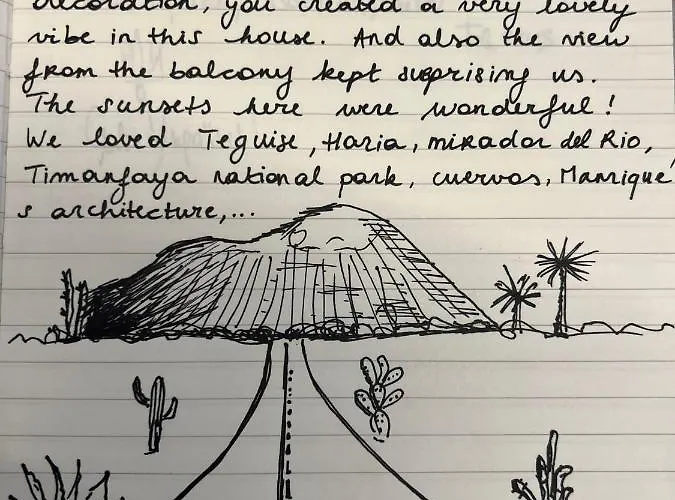 decoration, you created a very lovely
vibe in this house. And also the view
from the balcony kept suprising us.
The sunsets here were wonderful!
We loved Teguise, Haria, mirador del Rio,
Timanfaya national park, cuervos, Manrique'
s architecture,...